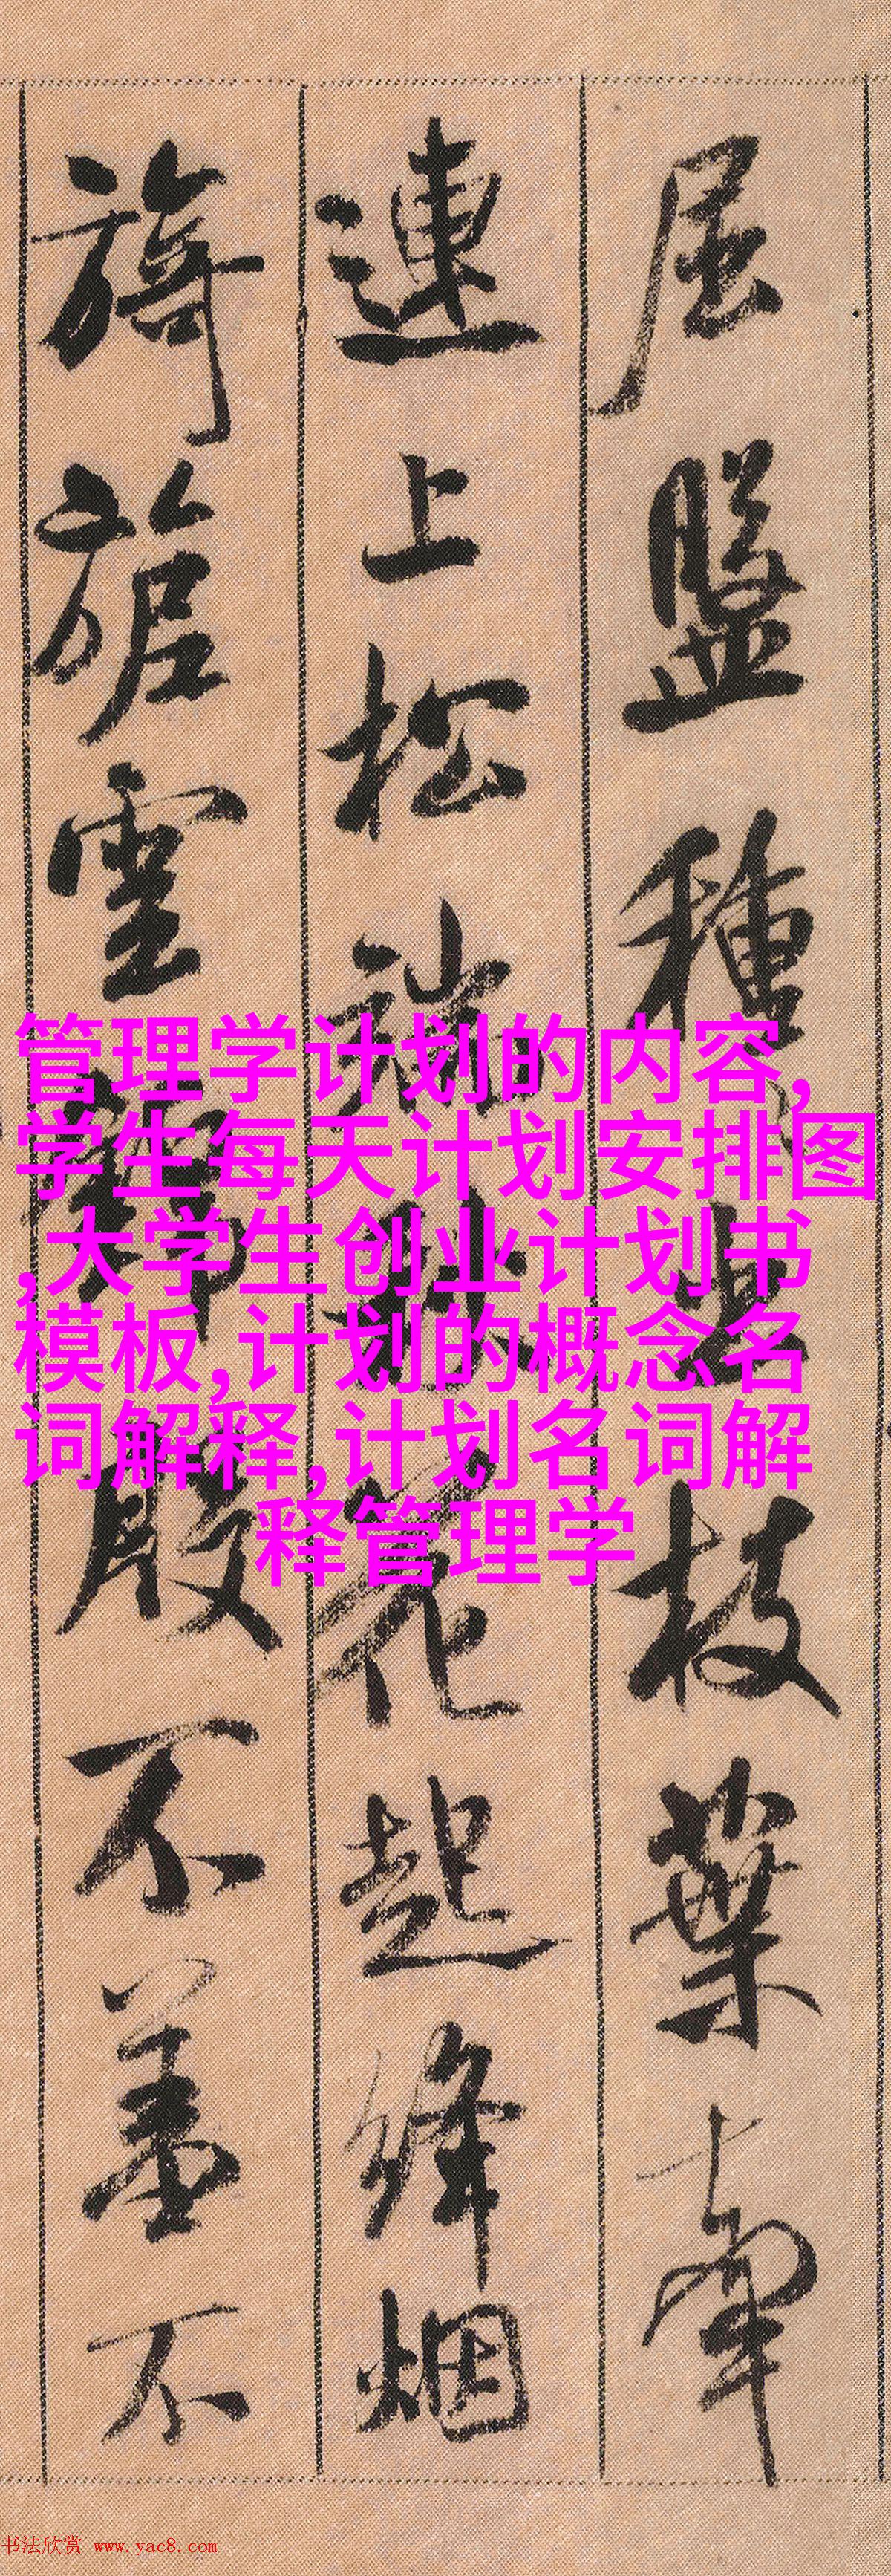 屈盤種種出枝葉牽
連上松端秋花起絳烟
旖旎雲錦殷不羞不
管理学计划的内容,
学生每天计划安排图
,大学生创业计划书
模板,计划的概念名
词解释,计划名词解
释管理学
书法欣赏 www.yac8.com